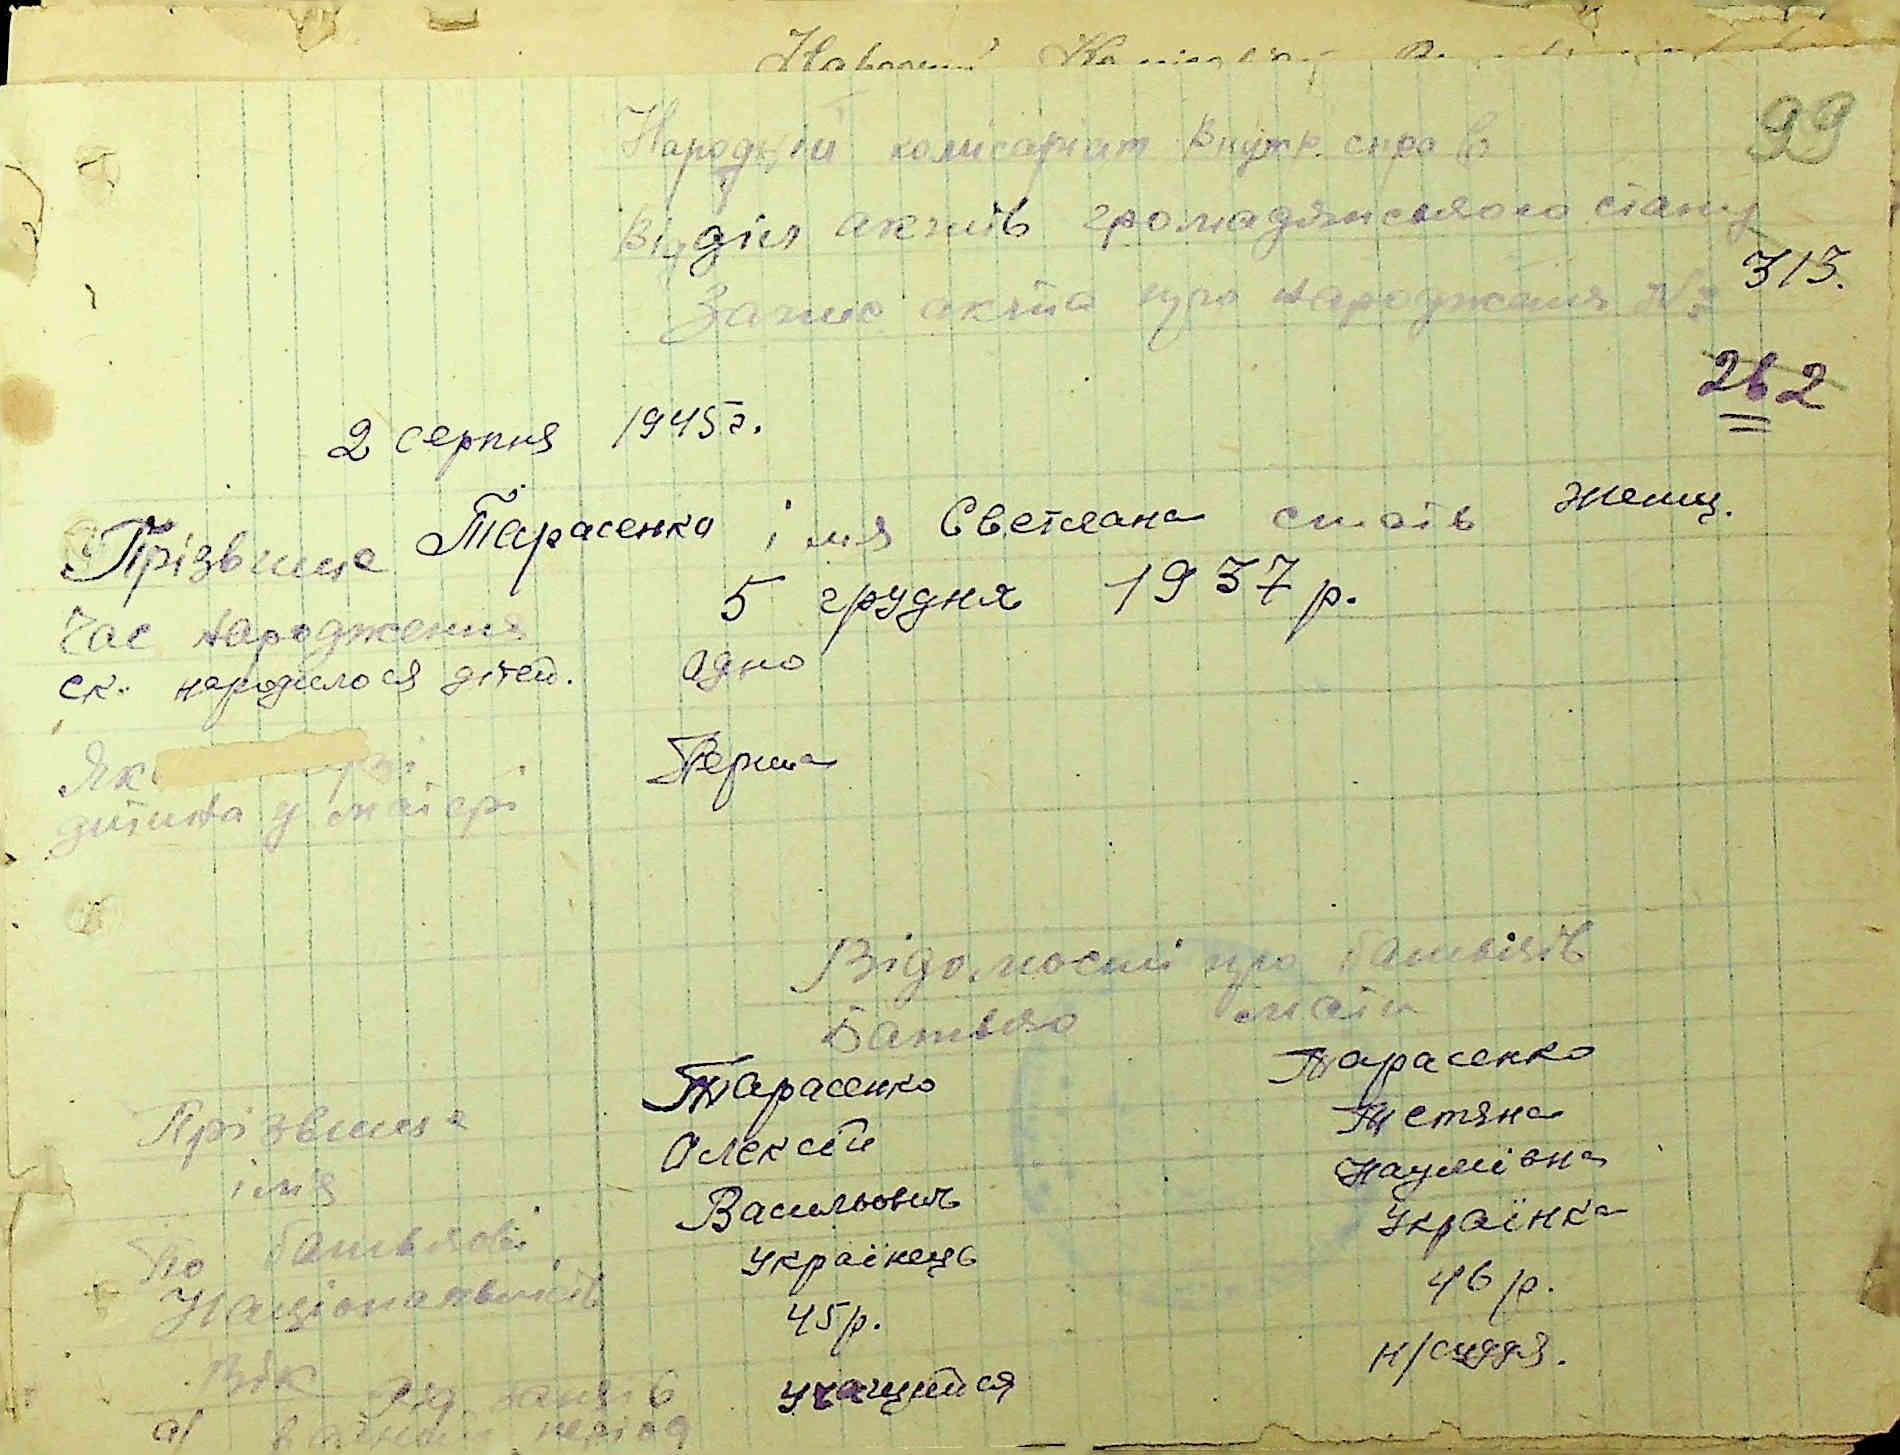 Народний
99
Народній комісаріат внутр. справ
Відділ актів громадянського стану
Запис акта про народження №
313.
262
2 серпня 1945 г.
Прізвище Тарасенко імя Светлана стать женщ.
Час народження 5 грудня 1937 р.
ск. народилося дітей. одно
Як
дитина у матері Перша
Відомості про батьків
Батько мати
Прізвище Тарасенко Тарасенко
імя Олексій Тетяна
По батькові Васильович Наумівна
Національність Українець Українка
Вік 45 р. 46 р.
Род занять учащийся н/суддя.
а) в даний період